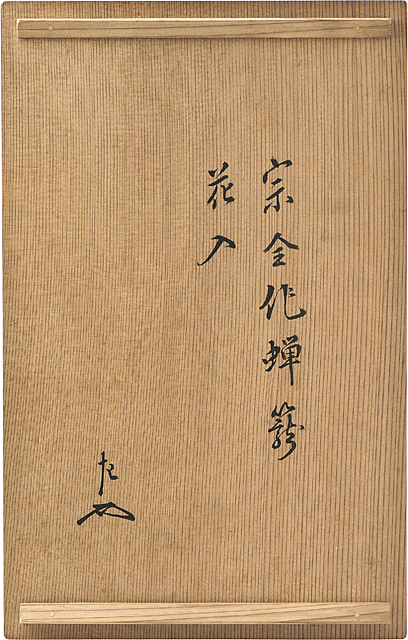 宗全作蝉籠
花入
左